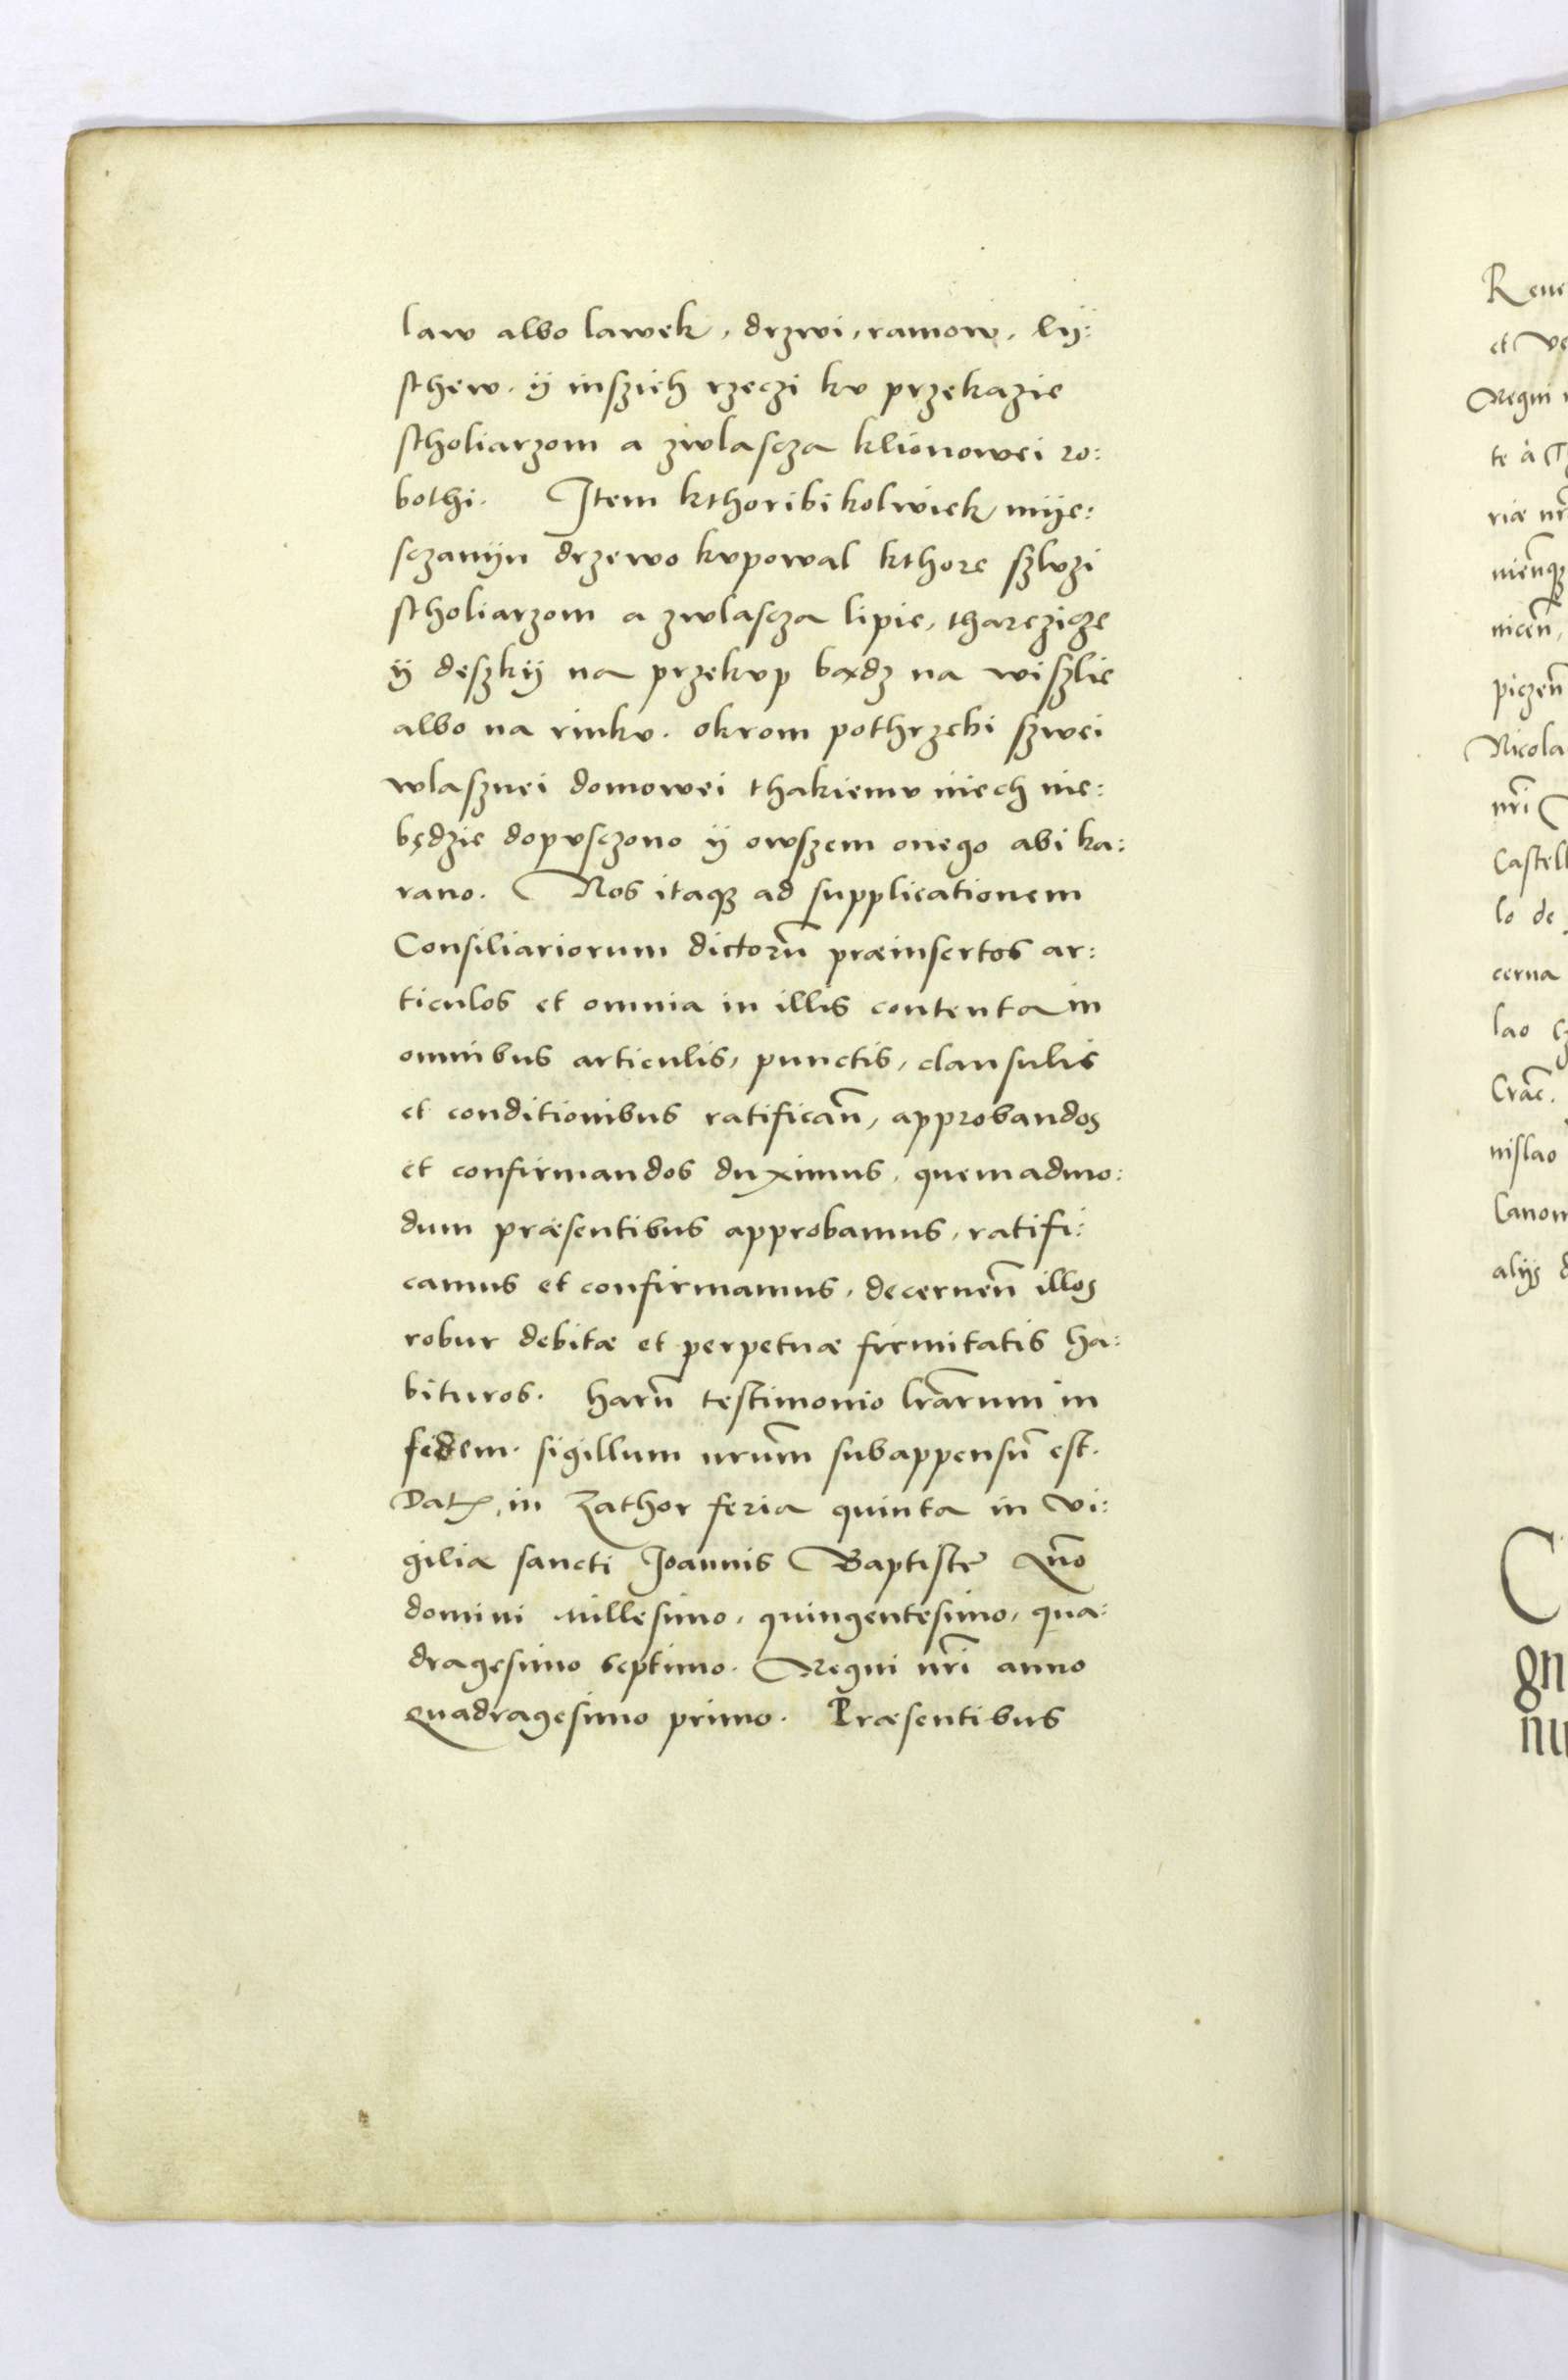 law albo lawek, drzwi, ramow, lÿ:
sthew. ÿ inszich rzeczi kv przekazie
stholiarzom a zwlascza klionowei ro:
bothi. Item kthoribikolwiek miÿe:
sczanÿn drzewo kvpowal kthore szlvzi
stholiarzom a zwlascza lipie, tharczicze
ÿ deszkÿ na przekvp bądz na wiszlie
albo na rinkv. okrom pothrzebi szwei
wlasznei domowei thakiemv niech nie:
będzie dopvsczono ÿ owszem onego abi ka:
rano. Nos itaqꝫ ad supplicationem
Consiliariorum dictorū præinsertos ar:
ticulos et omnia in illis contenta in
omnibus articulis, punctis, clausulis
et conditionibus ratificañ, approbandos
et confirmandos duximus, quemadmo:
dum præsentibus approbamus, ratifi:
camus et confirmamus, decerneñ illos
robur debitæ et perpetuæ firmitatis ha:
bituros. harū testimonio lr̄arum in
fidem. sigillum nrūm subappensū est.
Datꝭ in Zathor feria quinta in vi:
gilia sancti Joannis Baptistę Año
domini Millesimo, quingentesimo, qua:
dragesimo septimo. Regni nr̄i anno
quadragesimo primo. Præsentibus
Reue
et ve
Regni
te a
riæ nr̄
nieñqꝫ
niceñ,
piczeñ
Nicola
nr̄i
Castell
lo de
cerna
lao
Crac̄.
nislao
Canon
alijs
C
gn